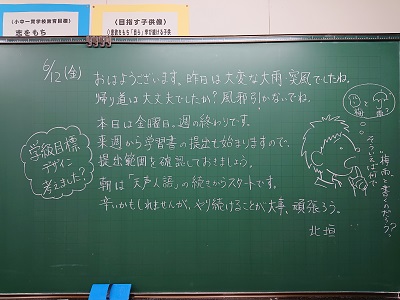 〈小中一貫学校教育目標〉
志をもち
〈目指す子供像〉
6/12(金)
おはようございます。昨日は大変な大雨、突風でしたね。
帰り道は大丈夫でしたか？風邪引かないでね。
本日は金曜日。週の終わりです。
来週から学習書の提出も始まりますので、
提出範囲を確認しておきましょう。
朝は「天声人語」の続きからスタートです。
辛いかもしれませんが、やり続けることが大事。頑張ろう。
北垣
学級目標
デザイン
考えました？
梅
雨
そういえば何で
"梅雨"と書くのだろう？